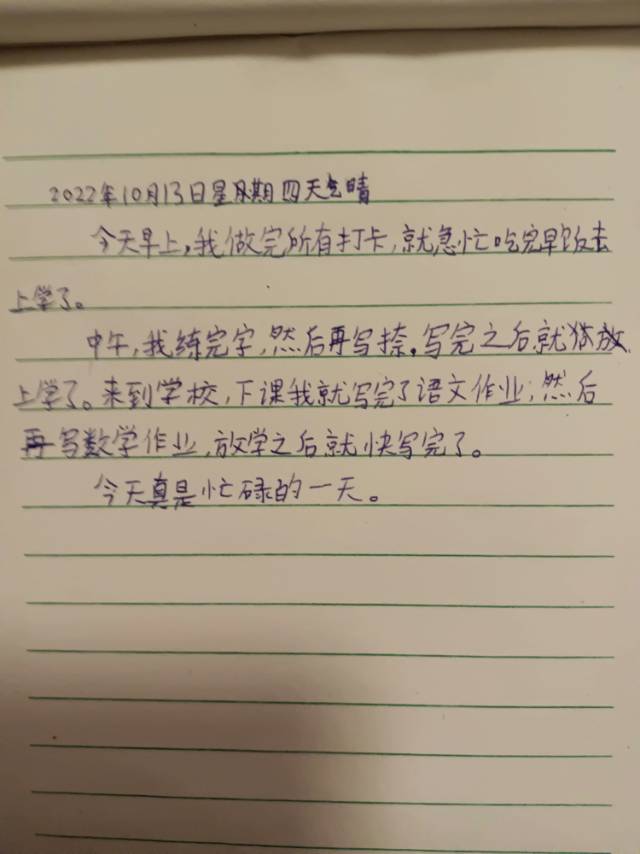 2022年10月13日星期四天气晴
今天早上,我做完所有打卡,就急忙吃完早饭去
上学了。
中午,我练完字,然后再写捺,写完之后就放
上学了。来到学校,下课我就写完了语文作业;然后
再写数学作业,放学之后就快写完了。
今天真是忙碌的一天。